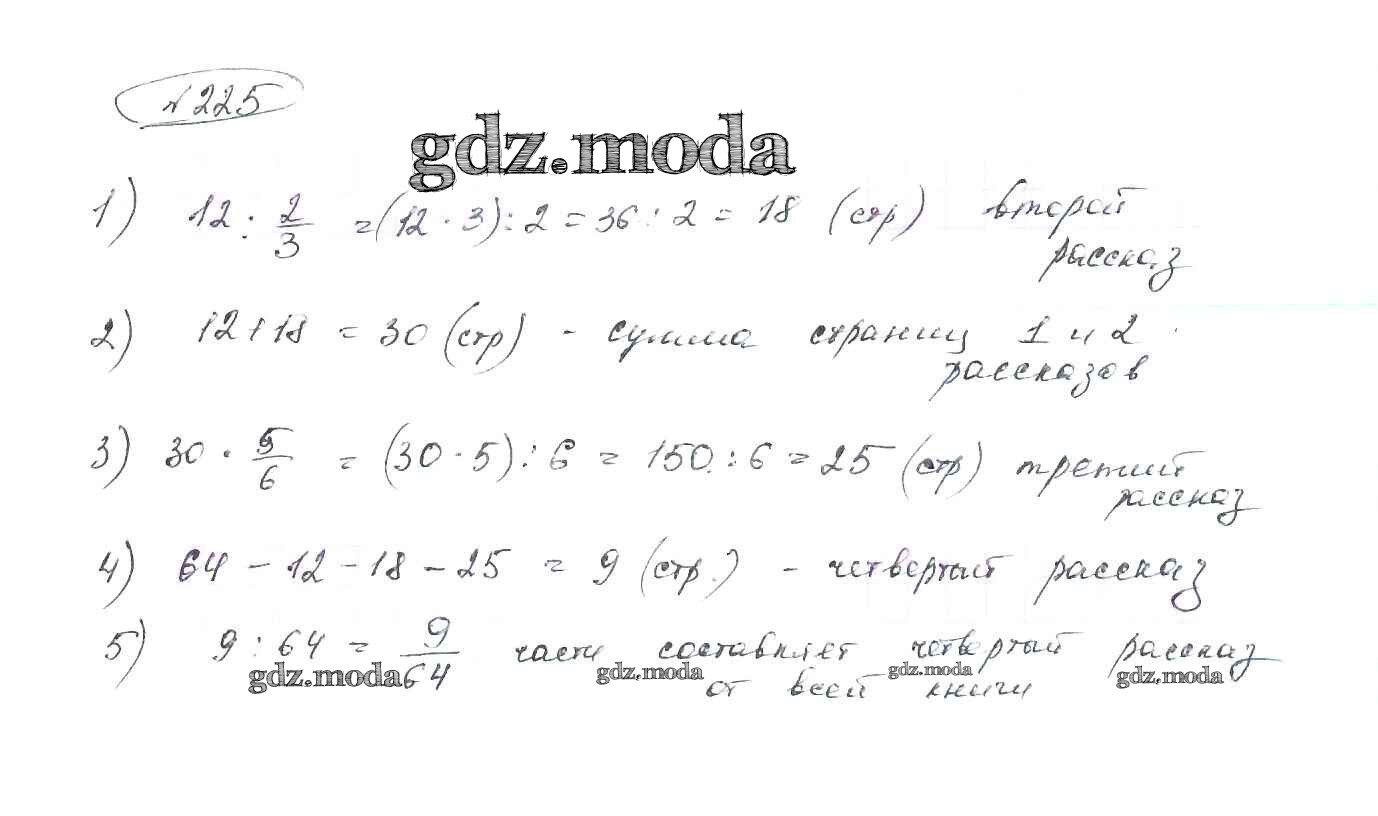 №225
gdz.moda
1) 12 : 2/3 = (12 · 3) : 2 = 36 : 2 = 18 (стр) второй
рассказ
2) 12 + 18 = 30 (стр) - сумма страниц 1 и 2
рассказов
3) 30 · 5/6 = (30 · 5) : 6 = 150 : 6 = 25 (стр) третий
рассказ
4) 64 - 12 - 18 - 25 = 9 (стр.) - четвертый рассказ
5) 9 : 64 = 9/64 части составляет четвертый рассказ
gdz.moda gdz.moda gdz.moda gdz.moda
от всей книги